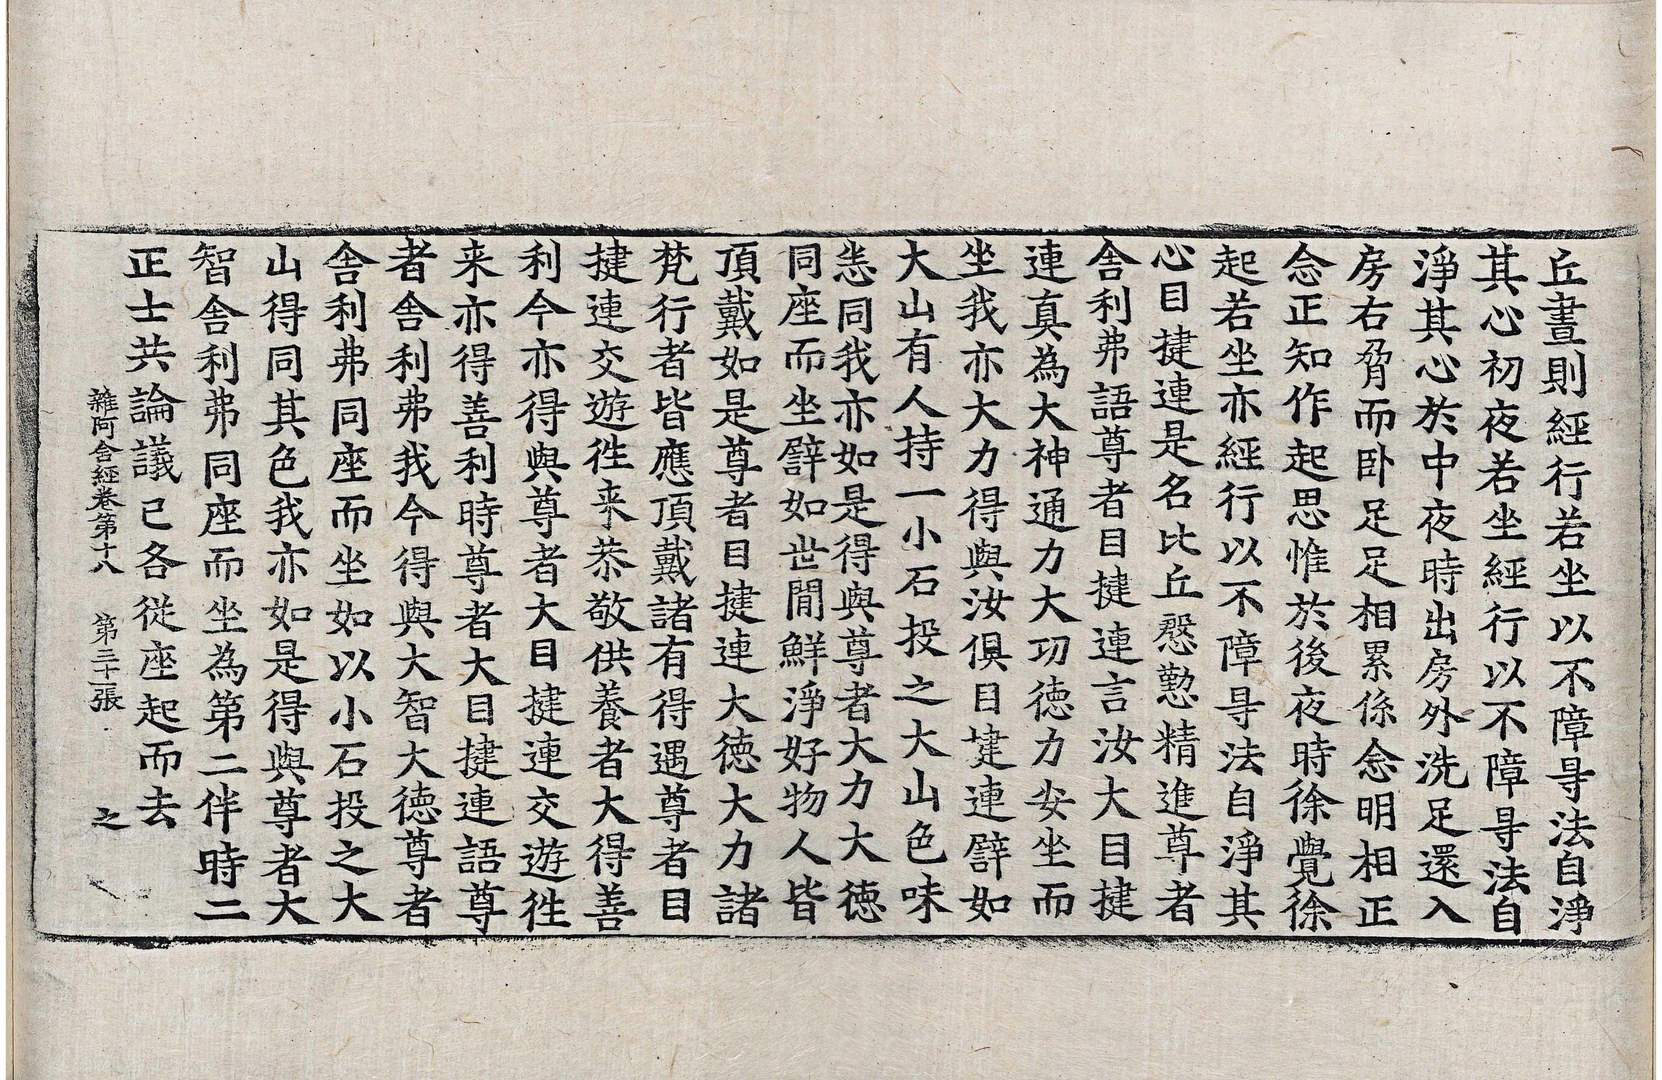 丘晝則經行若坐以不障㝵法自淨
其心初夜若坐經行以不障㝵法自
淨其心於中夜時出房外洗足還入
房右脅而卧足足相累係念明相正
念正知作起思惟於後夜時徐覺徐
起若坐亦經行以不障㝵法自淨其
心目揵連是名比丘慇懃精進尊者
舎利弗語尊者目揵連言汝大目揵
連真為大神通力大功徳力安坐而
坐我亦大力得與汝俱目揵連譬如
大山有人持一小石投之大山色味
悉同我亦如是得與尊者大力大徳
同座而坐譬如世間鮮淨好物人皆
頂戴如是尊者目揵連大徳大力諸
梵行者皆應頂戴諸有得遇尊者目
揵連交遊徃来恭敬供養者大得善
利今亦得與尊者大目揵連交遊徃
来亦得善利時尊者大目揵連語尊
者舎利弗我今得與大智大徳尊者
舎利弗同座而坐如以小石投之大
山得同其色我亦如是得與尊者大
智舎利弗同座而坐為第二伴時二
正士共論議已各從座起而去
雜阿含經卷第十八 第二十一張 之